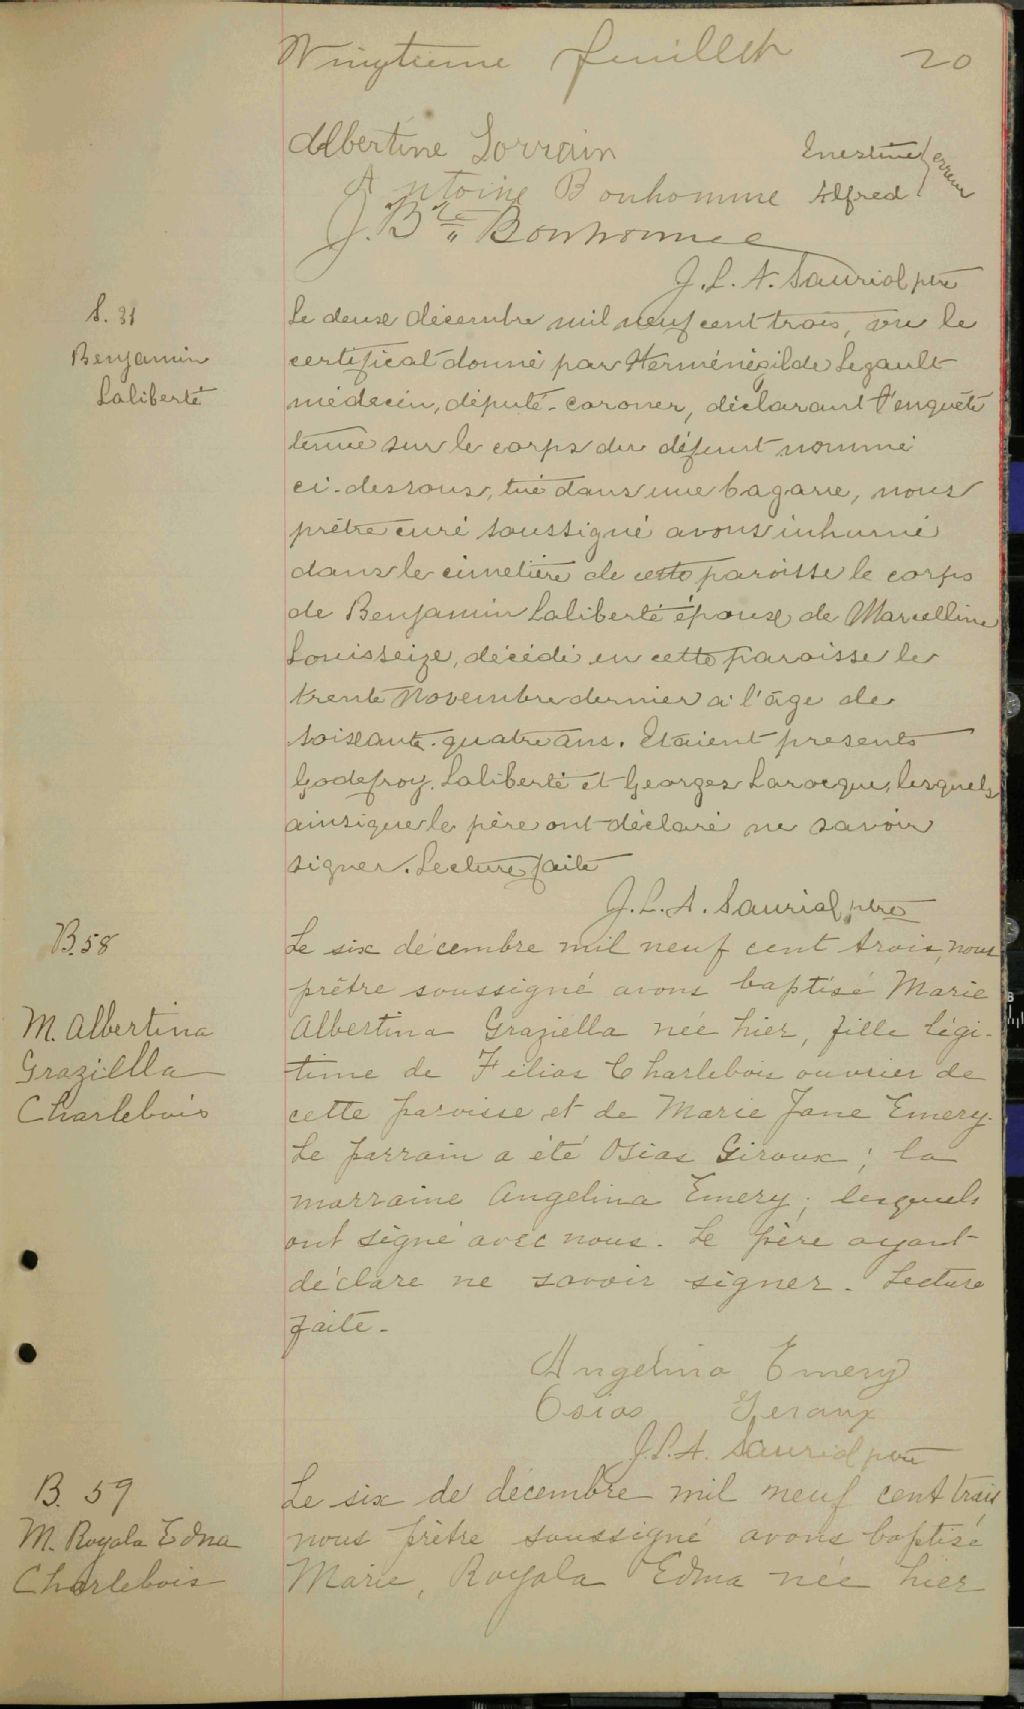 Vingtieme feuillet 20
Albertine Lorrain
Ernestine
Alfred
erreur
Antoine Bonhomme
J. Bte Bonhomme
J. L. A. Sauriol ptre
S. 31
Benjamin
Laliberté
Le deux décembre mil neuf cent trois, vu le
certificat donné par Herménégilde Legault
médecin, député-coroner, déclarant l'enquête
tenue sur le corps du défunt nommé
ci-dessous, tué dans une bagarre, nous
prêtre curé soussigné avons inhumé
dans le cimetière de cette paroisse le corps
de Benjamin Laliberté époux de Marcelline
Louisseize, décédé en cette paroisse le
trente Novembre dernier à l'âge de
soixante-quatre ans. Etaient presents
Godefroy Laliberté et Georges Larocque, lesquels
ainsi que le père ont déclaré ne savoir
signer. Lecture faite
J. L. A. Sauriol, ptre
B. 58
M. Albertina
Graziella
Charlebois
Le six décembre mil neuf cent trois, nous
prêtre soussigné avons baptisé Marie
Albertina Graziella née hier, fille légi-
time de Félias Charlebois ouvrier de
cette paroisse et de Marie Jane Emery.
Le parrain a été Osias Giroux; la
marraine Angelina Emery, lesquels
ont signé avec nous. Le père ayant
déclare ne savoir signer. Lecture
faite.
Angelina Emery
Osias Geroux
J. L. A. Sauriol ptre
B. 59
M. Royala Edna
Charlebois
Le six de décembre mil neuf cent trois
nous prêtre soussigné avons baptisé
Marie, Royala Edna née hier